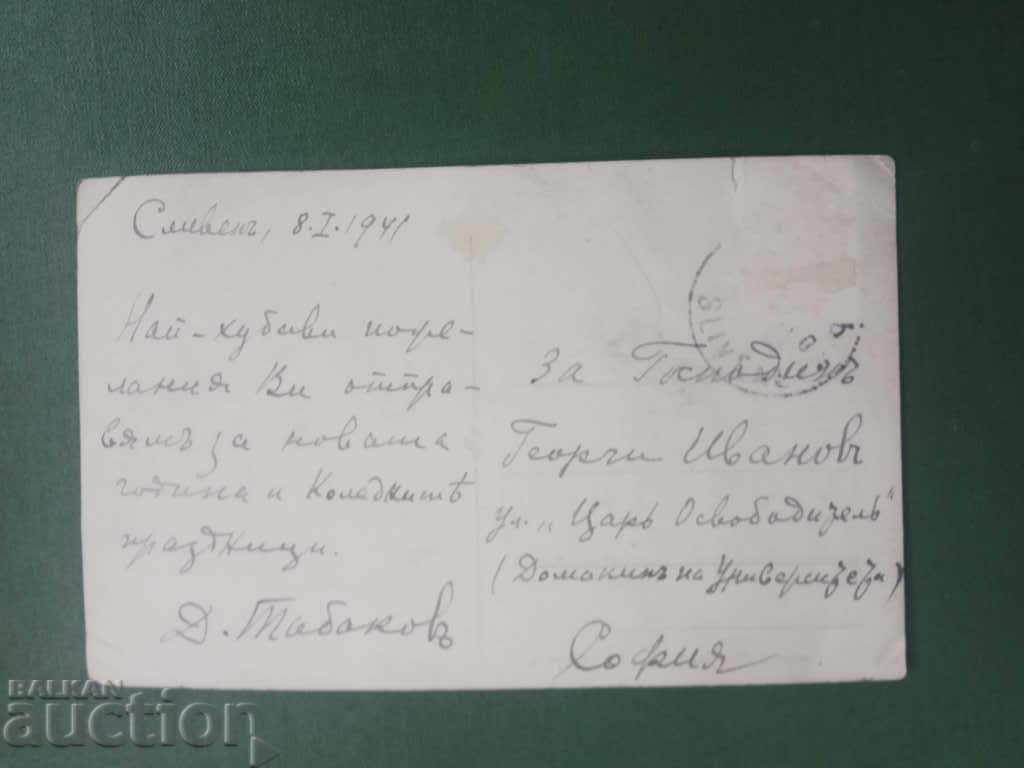 Сливенъ, 8.I.1941
Най-хубави поже-
лания Ви отпра-
вямъ за новата
година и Коледнитѣ
празници.
Д. Табаковъ
SLIV
За Господинъ
Георги Ивановъ
ул. „Царь Освободитель“
(Домакинъ на Университета)
София
BALKAN
auction